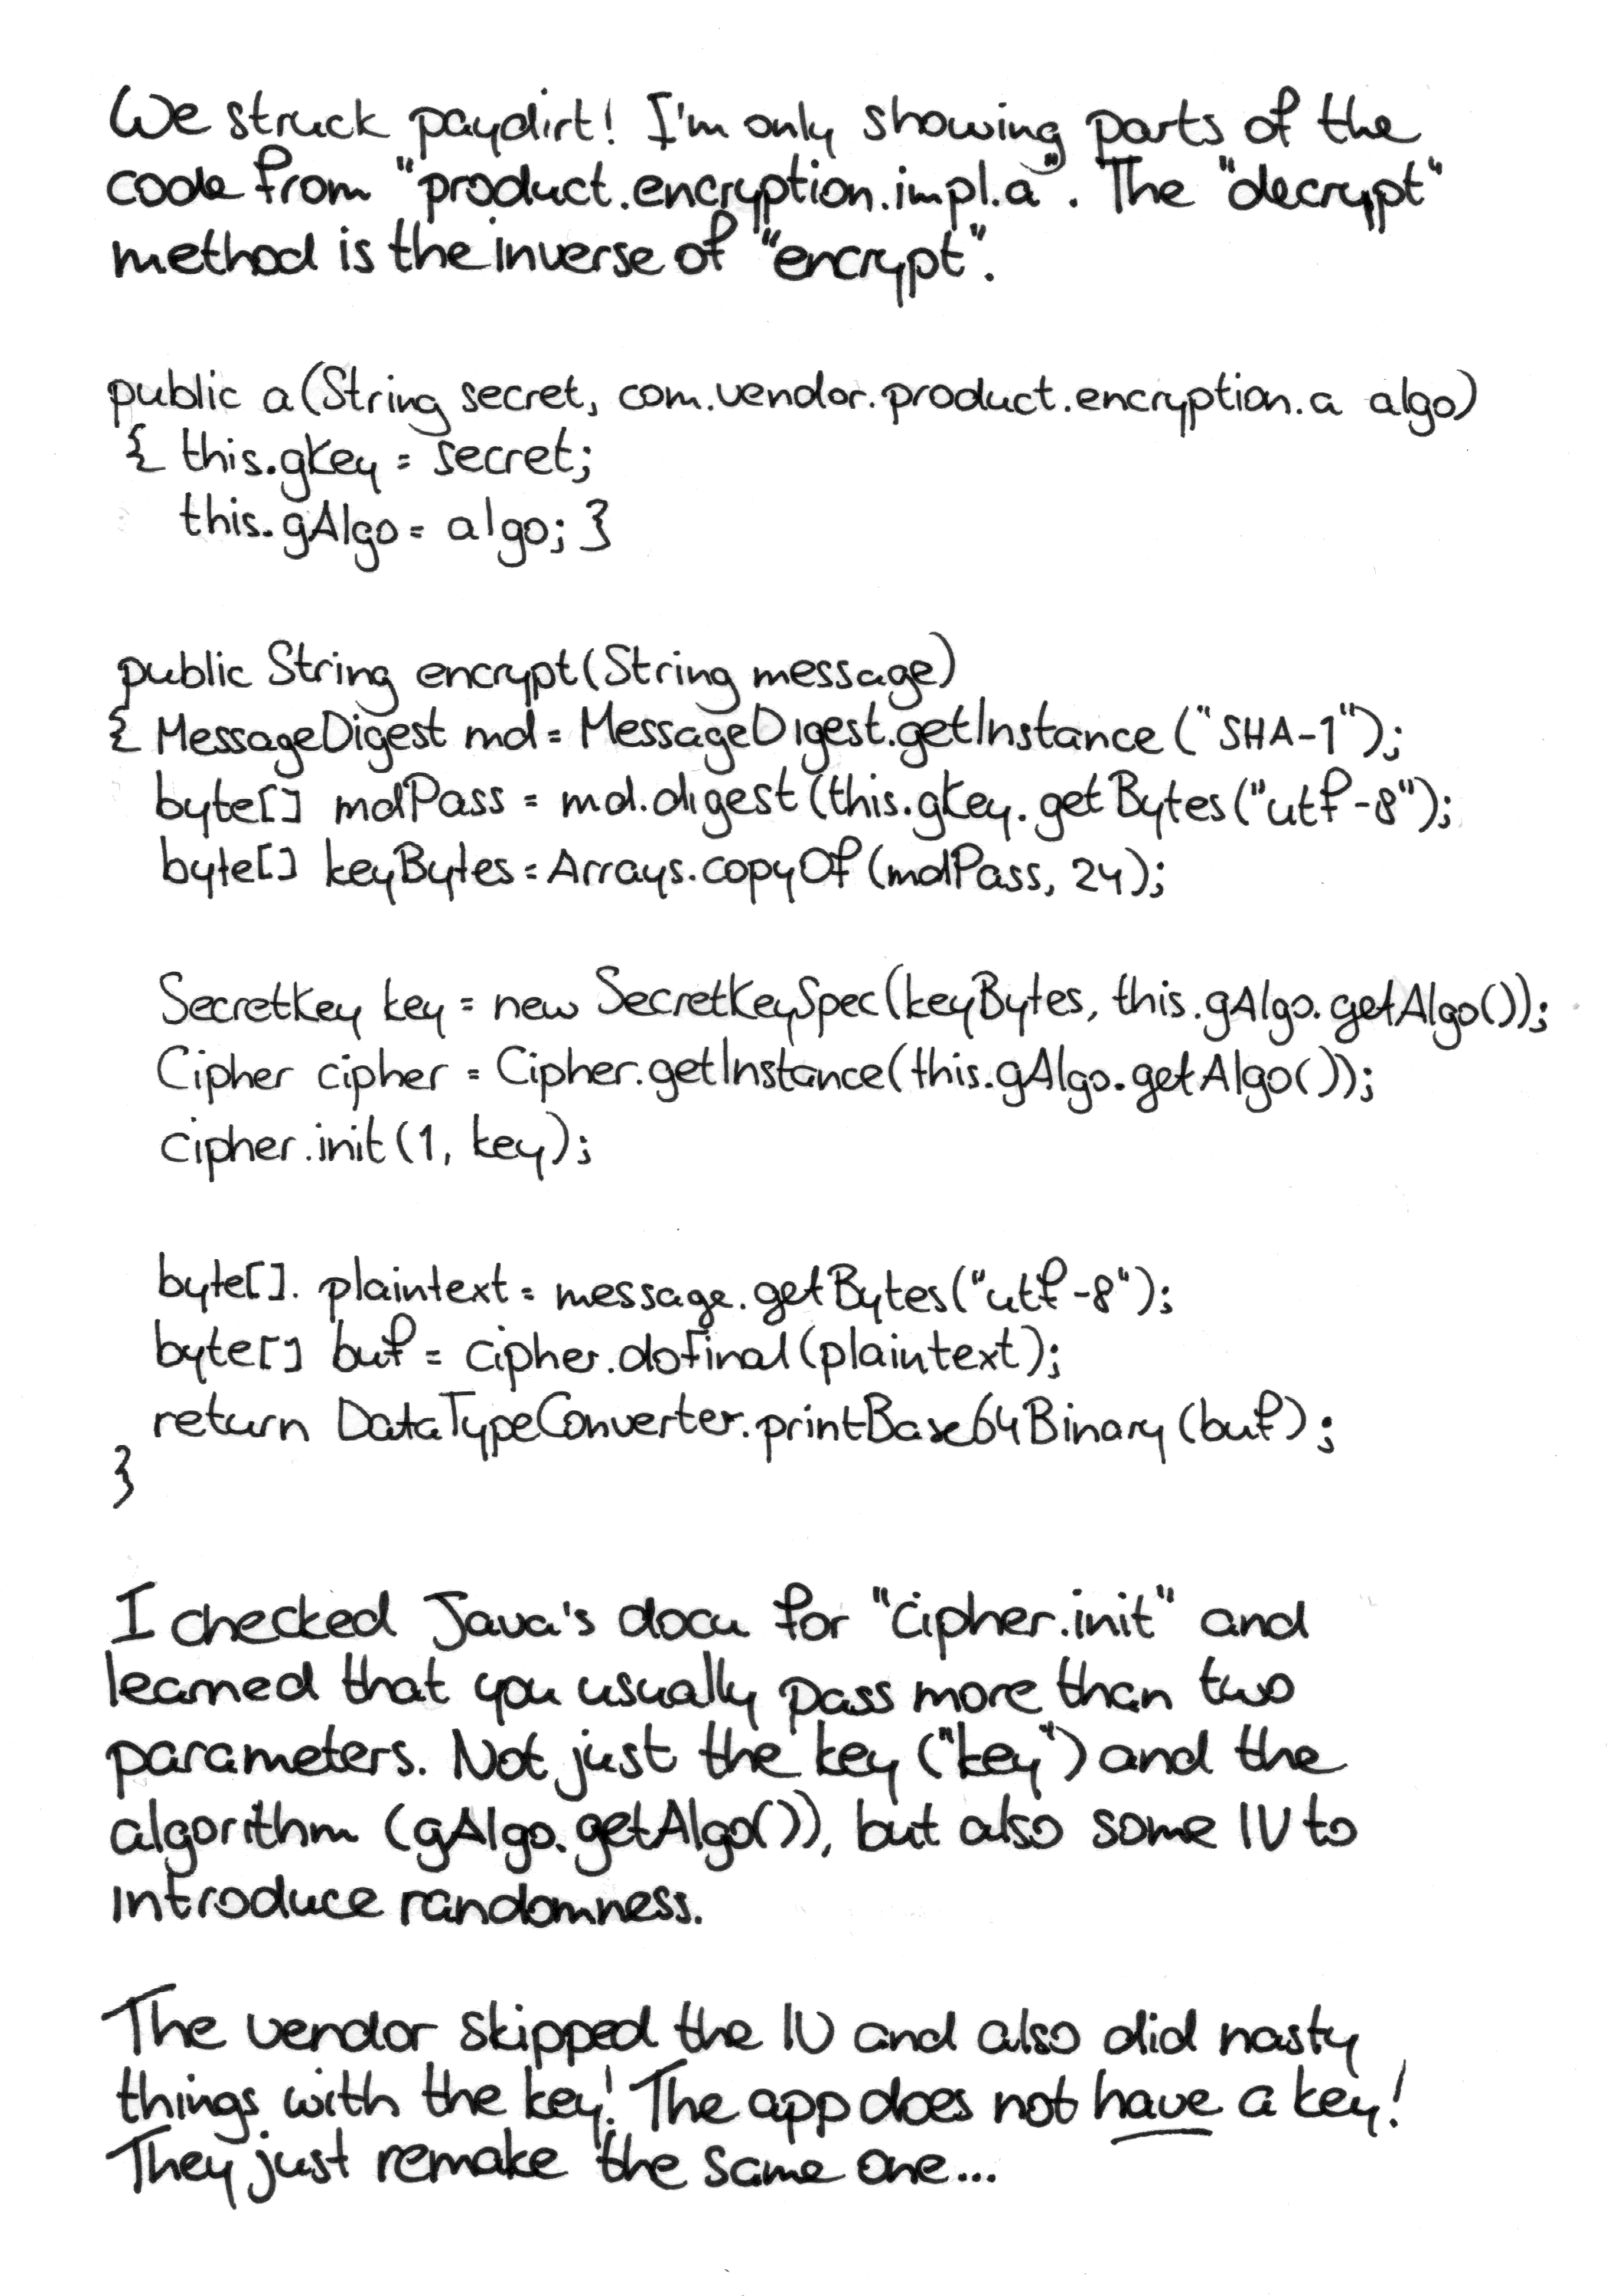 We struck paydirt! I'm only showing parts of the
code from "product.encryption.impl.a". The "decrypt"
method is the inverse of "encrypt".
public a(String secret, com.vendor.product.encryption.a algo)
{ this.gKey = secret;
this.gAlgo = algo; }
public String encrypt(String message)
{ MessageDigest md = MessageDigest.getInstance("SHA-1");
byte[] mdPass = md.digest(this.gKey.getBytes("utf-8");
byte[] keyBytes = Arrays.copyOf(mdPass, 24);
SecretKey key = new SecretKeySpec(keyBytes, this.gAlgo.getAlgo());
Cipher cipher = Cipher.getInstance(this.gAlgo.getAlgo());
cipher.init(1, key);
byte[]. plaintext = message.getBytes("utf-8");
byte[] buf = cipher.doFinal(plaintext);
return DataTypeConverter.printBase64Binary(buf);
}
I checked Java's docu for "Cipher.init" and
learned that you usually pass more than two
parameters. Not just the key ("key") and the
algorithm (gAlgo.getAlgo()), but also some IV to
introduce randomness.
The vendor skipped the IV and also did nasty
things with the key! The app does not have a key!
They just remake the same one...